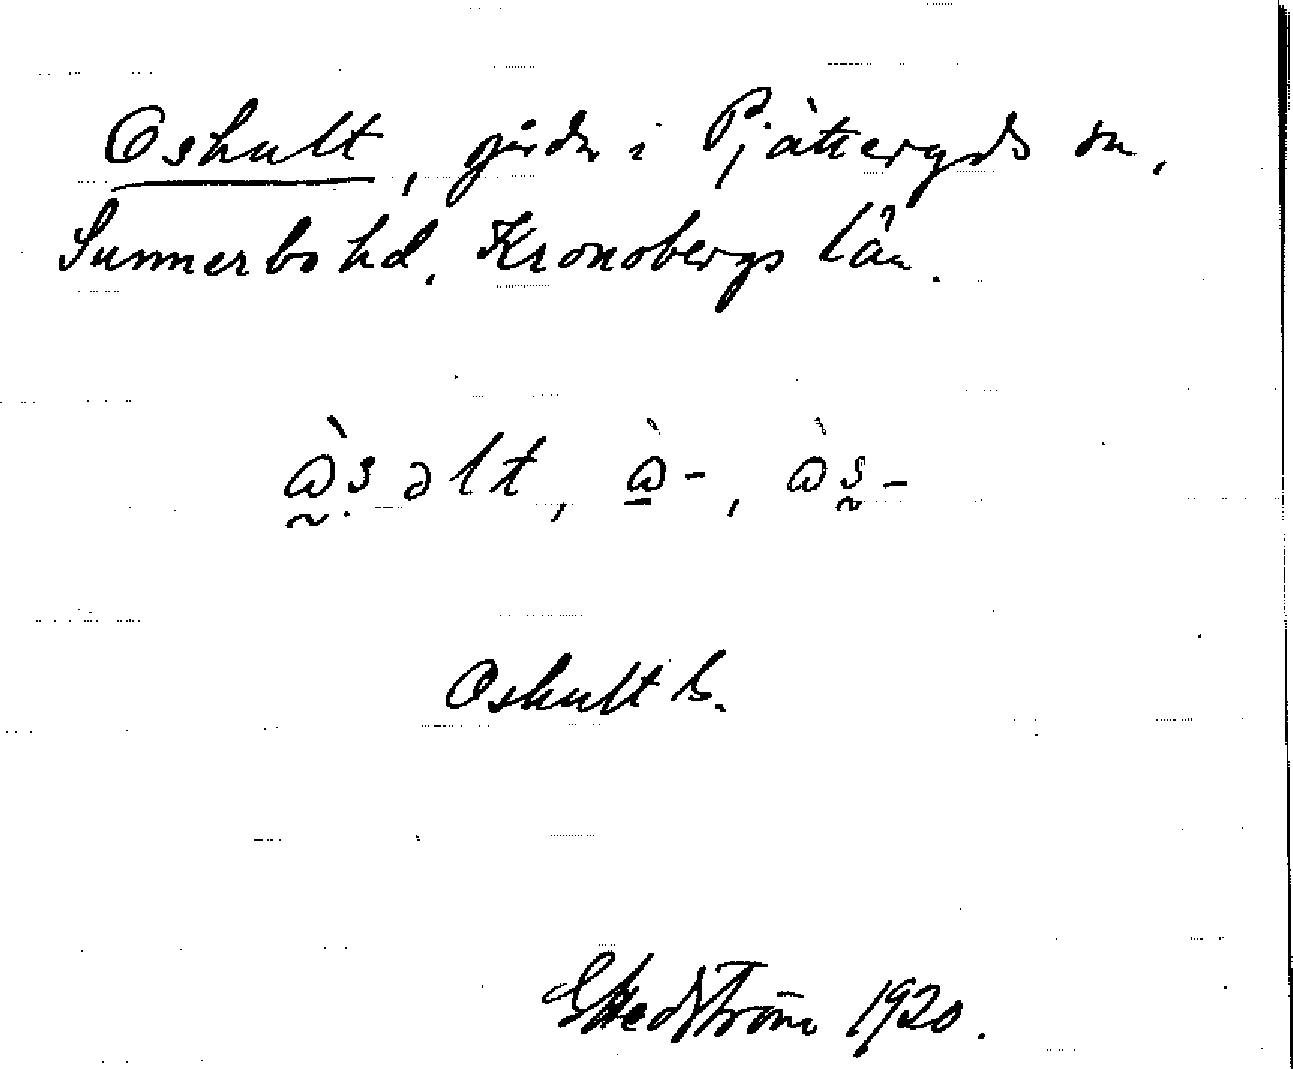 Oshult, gårdar i Pjätteryds sn,
Sunnerbo hd, Kronobergs län.
ὰsəlt, ὰ-, ὰs-
Oshult b.
G Hedström 1920.